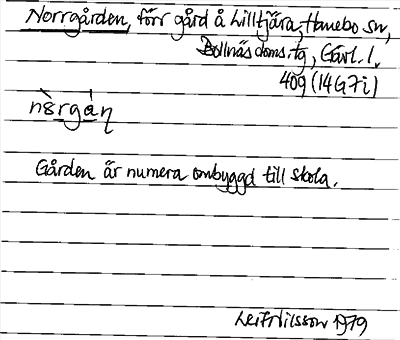 Norrgården, förr gård å Lilltjära, Hanebo sn,
Bollnäs doms.tg, Gävl. l.
409 (14G7i)
nòrgáɳ
Gården är numera ombyggd till skola.
Leif Nilsson 1979